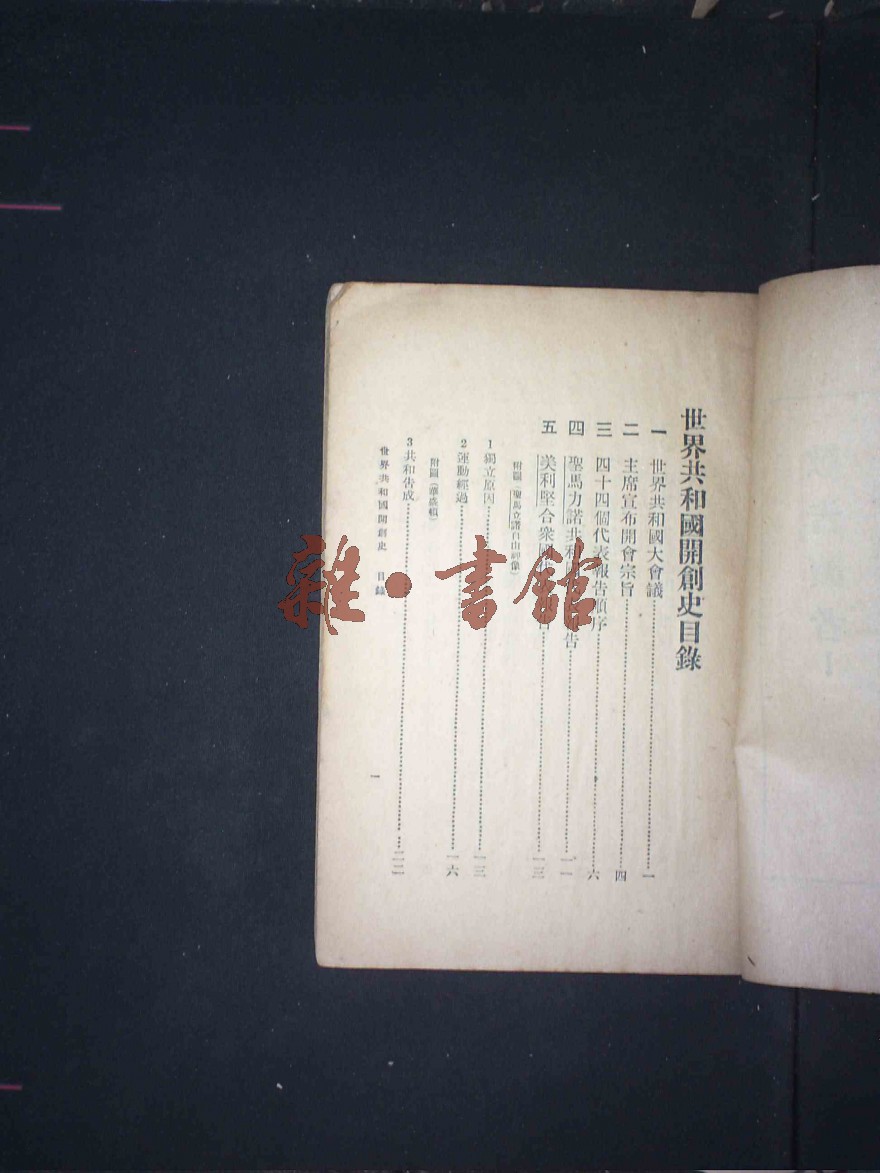 世界共和國開創史目錄
一 世界共和國大會議 一
二 主席宣布開會宗旨 四
三 四十四個代表報告順序 六
四 聖馬力諾共和 告 一一
五 美利堅合衆國 告 一三
附圖(聖馬立諾自由神像)
1 獨立原因 一三
2 運動經過 一六
附圖(華盛頓)
3 共和告成 二二
世界共和國開創史 目錄
一
雜·書館